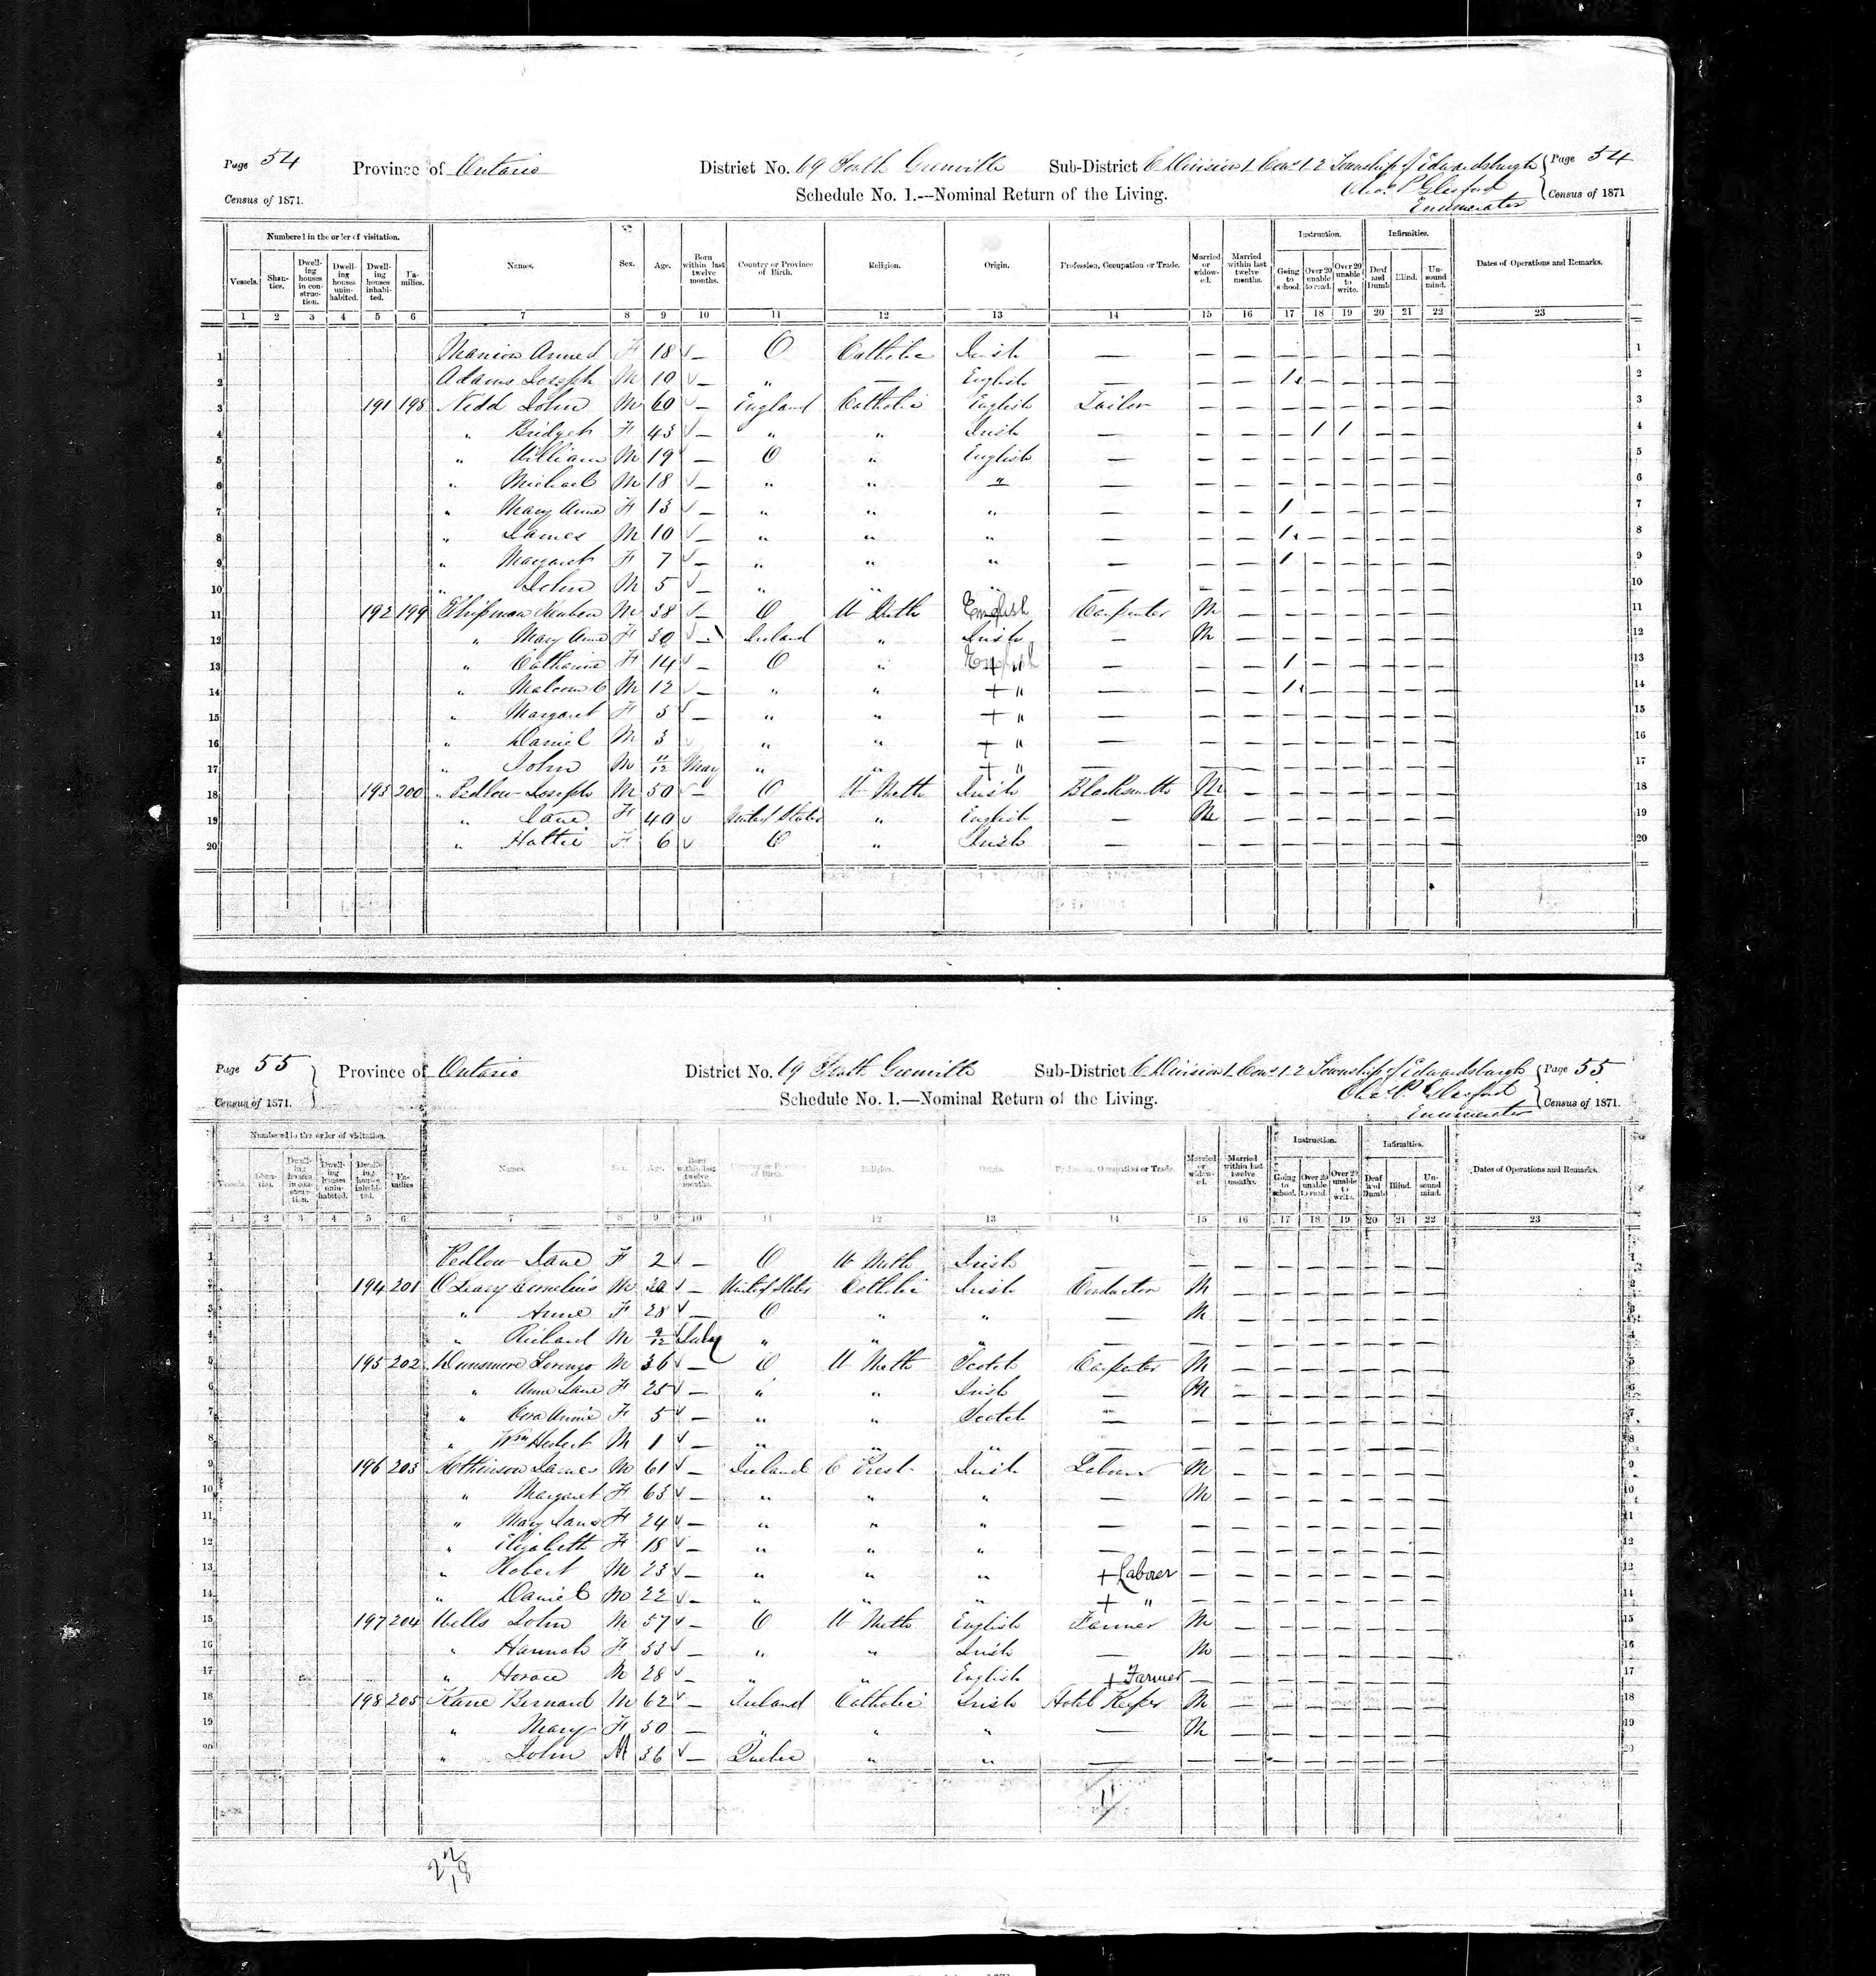 Page 54 Province of Ontario District No. 69 South Grenville Sub-District C Division 1 Con 1.2 Township of Edwardsburgh Page 54
Census of 1871. Schedule No. 1.---Nominal Return of the Living. Chas. P. Glasford Census of 1871
Enumerator
Numbered in the order of visitation. Instruction. Infirmities.
Vessels. Shanties. Dwelling houses in construction. Dwelling houses uninhabited. Dwelling houses inhabited. Families. Names. Sex. Age. Born within last twelve months. Country or Province of Birth. Religion. Origin. Profession, Occupation or Trade. Married or widowed. Married within last twelve months. Going to school. Over 20 unable to read. Over 20 unable to write. Deaf and Dumb Blind. Unsound mind. Dates of Operations and Remarks.
1 2 3 4 5 6 7 8 9 10 11 12 13 14 15 16 17 18 19 20 21 22 23
1 Manion F 18 — O Catholic Irish — — — — — — — — — 1
2 Adams Joseph M 10 — " — English — — — 1 — — — — — 2
3 191 198 Nedd John M 60 — England Catholic English Tailor — — — — — — — — 3
4 " Bridget F 43 — " " Irish — — — — 1 1 — — 4
5 " William M 19 — O " English — — — — — — — — — 5
6 " Michael M 18 — " " " — — — — — — — — — 6
7 " Mary Anne F 13 — " " " — — — 1 — — — — — 7
8 " James M 10 — " " " — — — 1 — — — — — 8
9 " Margaret F 7 — " " " — — — 1 — — — — — 9
10 " John M 5 " " " — — — — — — — — — 10
11 192 199 Shipman Reuben M 38 — O W Meth English Carpenter M — — — — — — — 11
12 " Mary Anne F 30 — Ireland " Irish — M — — — — — — — 12
13 " Catharine F 14 — O " English — — — 1 — — — — — 13
14 " Malcom C M 12 — " " + " — — — 1 — — — — — 14
15 " Margaret F 5 — " " + " — — — — — — — — — 15
16 " Daniel M 3 " " + " — — — — — — — — — 16
17 " John M 11/12 May " " + " — — — — — — — — — 17
18 193 200 Pedlow Joseph M 50 — O W Meth Irish Blacksmith M — — — — — — — 18
19 " Jane F 40 United States " English — M — — — — — — — 19
20 " Hattie F 6 O " Irish — — — — — — — — — 20
Page 55 Province of Ontario District No. 69 South Grenville Sub-District C Division 1 Con 1.2 Township of Edwardsburgh Page 55
Census of 1871. Schedule No. 1.—Nominal Return of the Living. Chas. P. Glasford Census of 1871.
Enumerator
Numbered in the order of visitation. Instruction. Infirmities.
Vessels. Shanties. Dwelling houses in construction. Dwelling houses uninhabited. Dwelling houses inhabited. Families Names. Sex. Age. Born within last twelve months. Country or Province of Birth. Religion. Origin. Profession, Occupation or Trade. Married or widowed. Married within last twelve months. Going to school. Over 20 unable to read. Over 20 unable to write. Deaf and Dumb Blind. Unsound mind. Dates of Operations and Remarks.
1 2 3 4 5 6 7 8 9 10 11 12 13 14 15 16 17 18 19 20 21 22 23
1 Pedlow Jane F 2 — O W Meth Irish — — — — — — — — — 1
2 194 201 O'Leary Cornelius M 30 — United States Catholic Irish Conductor M — — — — — — — 2
3 " Anne F 28 — O " " — M — — — — — — — 3
4 " Richard M 9/12 July " " " — — — — — — — — — 4
5 195 202 Dunsmore Lorenzo M 36 — O W Meth Scotch Carpenter M — — — — — — — 5
6 " Anne Jane F 25 — " " Irish — M — — — — — — — 6
7 " Cora Annie F 5 — " " Scotch — — — — — — — — — 7
8 " Wm Herbert M 1 — " " " — — — — — — — — — 8
9 196 203 Atkinson James M 61 — Ireland C Presb Irish Laborer M — — — — — — — 9
10 " Margaret F 63 — " " " — M — — — — — — — 10
11 " Mary Jane F 24 — " " " — — — — — — — — — 11
12 " Elizabeth F 18 — " " " — — — — — — — — — 12
13 " Robert M 23 — " " " + Laborer — — — — — — — — 13
14 " Daniel M 22 — " " " + " — — — — — — — — 14
15 197 204 Wells John M 57 — O W Meth English Farmer M — — — — — — — 15
16 " Hannah F 53 — " " Irish — M — — — — — — — 16
17 " Horace M 28 — " " English + Farmer — — — — — — — — 17
18 198 205 Kane Bernard M 62 — Ireland Catholic Irish Hotel Keeper M — — — — — — — 18
19 " Mary F 50 — " " " — M — — — — — — — 19
20 " John M 36 — Quebec " " — — — — — — — — — 20
11
22
18